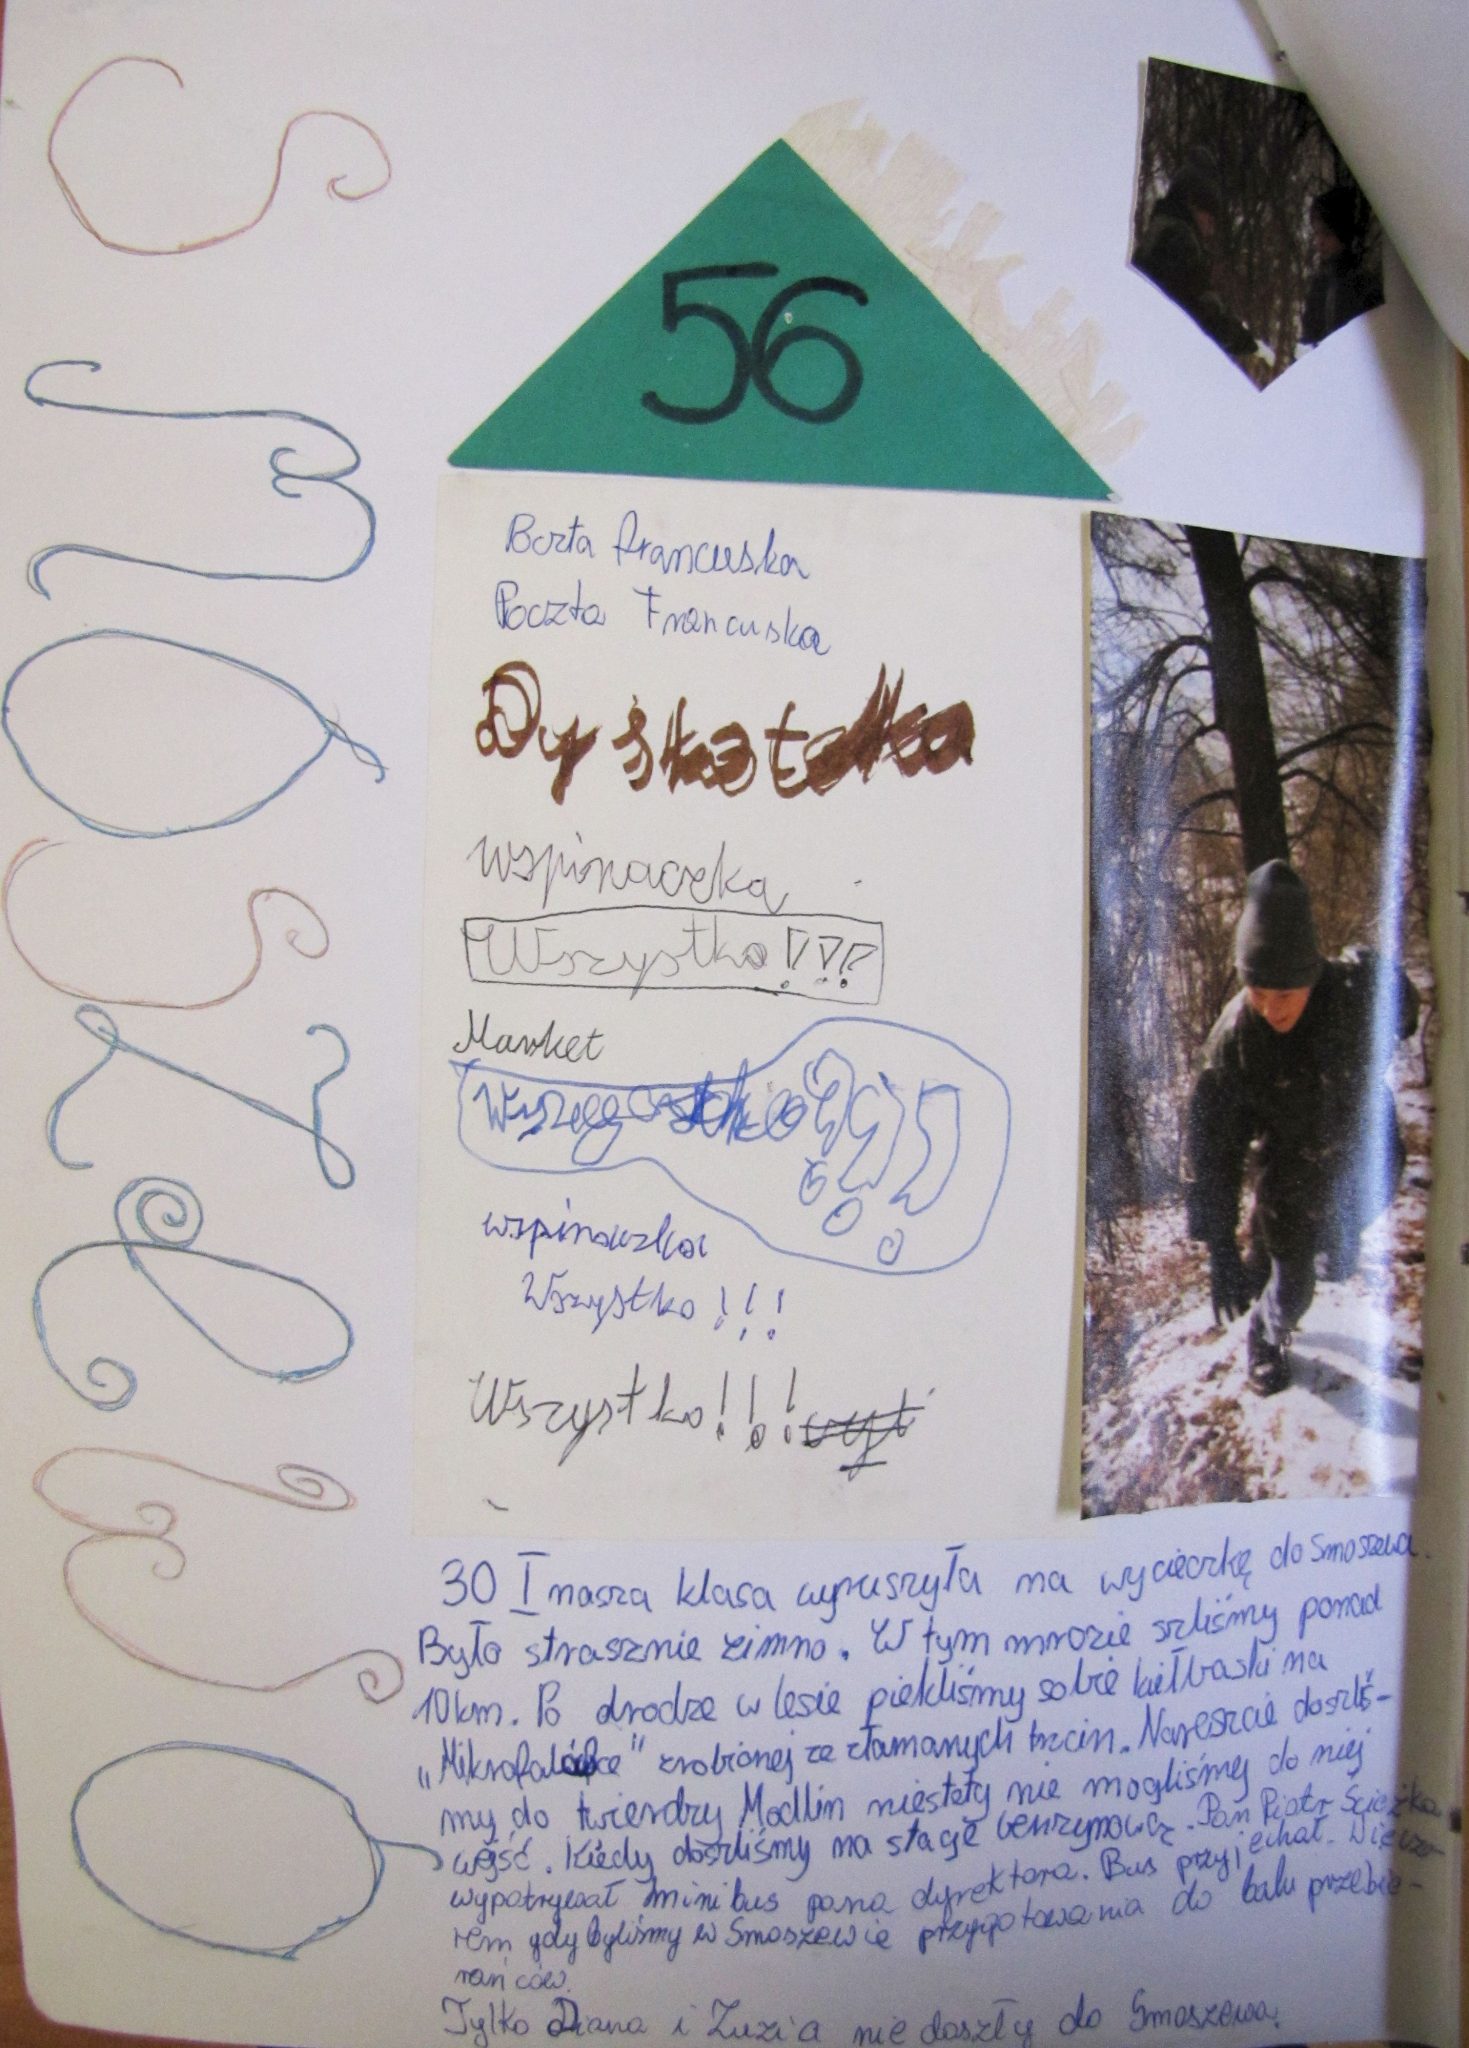 Smoszewo
56
Barta francuska
Poczta Francuska
Dyskoteka
wspinaczka
Wszystko!!!
Market
Wszystko!!!
wspinaczka
Wszystko!!!
Wszystko!!!
30 I nasza klasa wyruszyła na wycieczkę do Smoszewa.
Było strasznie zimno. W tym mrozie szliśmy ponad
10km. Po drodze w lesie piekliśmy sobie kiełbaski na
„Mikrofalówce" zrobionej ze złamanych trzcin. Nareszcie doszliś-
my do twierdzy Modlin niestety nie mogliśmy do niej
wejść. Kiedy doszliśmy na stację benzynową. Pan Piotr Ścieżka
wypatrywał minibus pana dyrektora. Bus przyjechał. Wieczo-
rem gdy byliśmy w Smoszewie przygotowania do balu przebie-
rańców.
Tylko Diana i Zuzia nie doszły do Smoszewa.